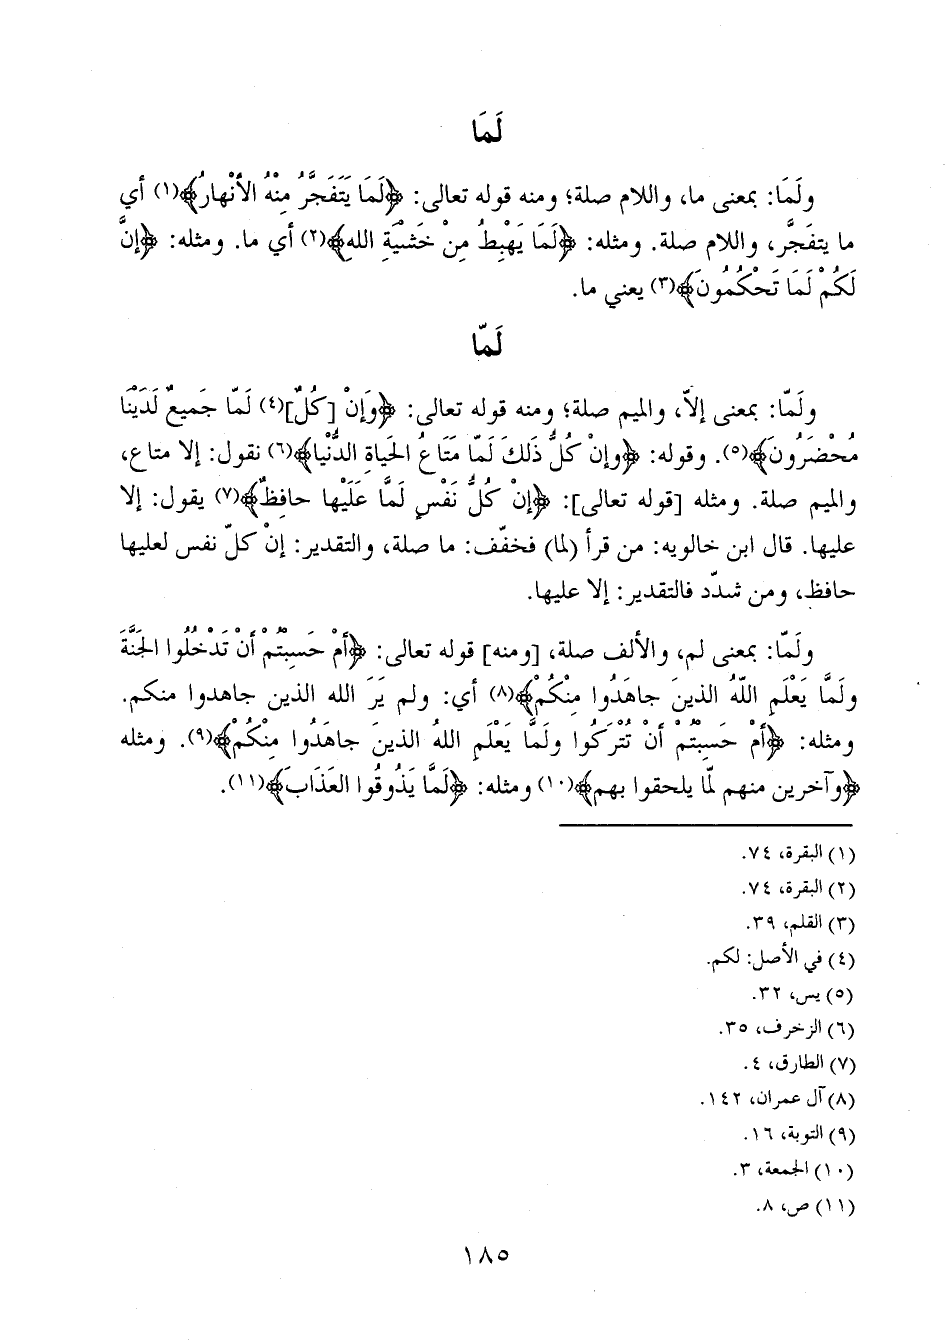 لَمَا
ولَمَا: بمعنى ما، واللام صلة؛ ومنه قوله تعالى: ﴿لَمَا يَتَفَجَّرُ مِنْهُ الأَنْهارُ﴾(١) أي
ما يتفجَّر، واللام صلة. ومثله: ﴿لَمَا يَهْبِطُ مِنْ خَشْيَةِ اللهِ﴾(٢) أي ما. ومثله: ﴿إنَّ
لَكُمْ لَمَا تَحْكُمُونَ﴾(٣) يعني ما.
لَمّا
ولَمّا: بمعنى إلاّ، والميم صلة؛ ومنه قوله تعالى: ﴿وَإنْ [كُلٌ](٤) لَمّا جَميعٌ لَدَيْنَا
مُحْضَرُونَ﴾(٥). وقوله: ﴿وإنْ كُلُّ ذَلكَ لَمّا مَتَاعُ الحَياةِ الدُّنْيا﴾(٦) نقول: إلا متاع،
والميم صلة. ومثله [قوله تعالى]: ﴿إنْ كُلُّ نَفْسٍ لَمَّا عَلَيْها حافِظٌ﴾(٧) يقول: إلا
عليها. قال ابن خالويه: من قرأ (لما) فخفّف: ما صلة، والتقدير: إنْ كلّ نفس لعليها
حافظ، ومن شدّد فالتقدير: إلا عليها.
ولَمّا: بمعنى لم، والألف صلة، [ومنه] قوله تعالى: ﴿أمْ حَسِبْتُمْ أنْ تَدْخُلُوا الجَنَّةَ
ولَمَّا يَعْلَمِ اللّهُ الذينَ جاهَدُوا مِنْكُمْ﴾(٨) أي: ولم يَرَ الله الذين جاهدوا منكم.
ومثله: ﴿أمْ حَسِبْتُمْ أنْ تُتْرَكُوا ولَمَّا يَعْلَمِ اللهُ الذينَ جاهَدُوا مِنْكُمْ﴾(٩). ومثله
﴿وآخرين منهم لمّا يلحقوا بهم﴾(١٠) ومثله: ﴿لَمَّا يَذُوقُوا العَذَابَ﴾(١١).
(١) البقرة، ٧٤.
(٢) البقرة، ٧٤.
(٣) القلم، ٣٩.
(٤) في الأصل: لكم.
(٥) يس، ٣٢.
(٦) الزخرف، ٣٥.
(٧) الطارق، ٤.
(٨) آل عمران، ١٤٢.
(٩) التوبة، ١٦.
(١٠) الجمعة، ٣.
(١١) ص، ٨.
١٨٥